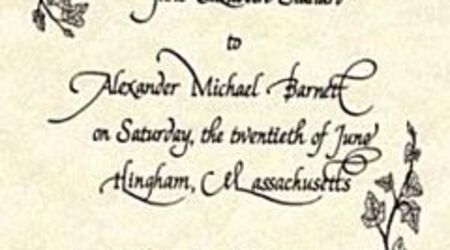 to
Alexander Michael Barnett
on Saturday, the twentieth of June
Hingham, Massachusetts